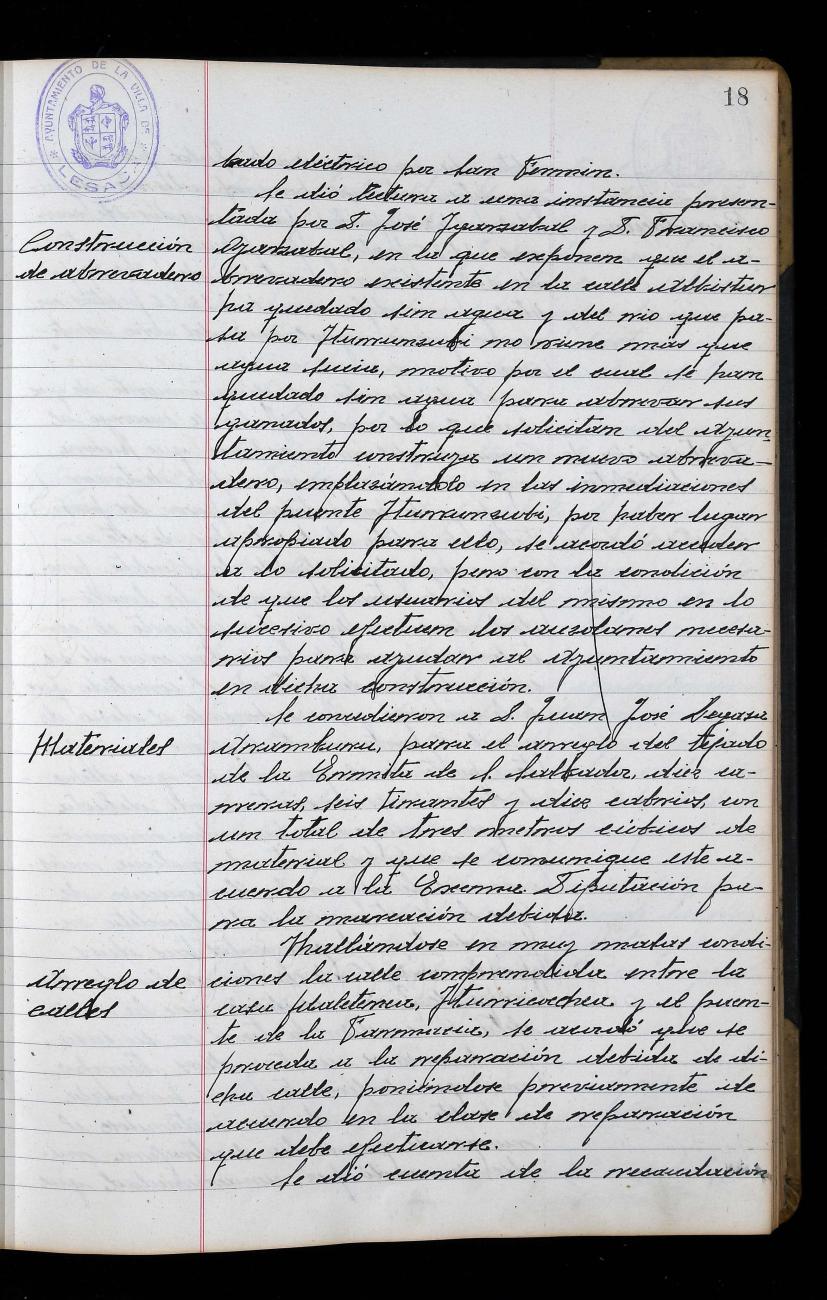 18
AYUNTAMIENTO DE LA VILLA DE
LESACA
brado eléctrico por San Fermin.
Se dió lectura a una instancia presen-
tada por D. José Igarzabal y D. Francisco
Construcción
de abrevadero
Ogarzabal, en la que exponen que el a-
brevadero existente en la calle Albistur
ha quedado sin agua y del rio que pa-
sa por Iturrunzubi no viene más que
agua sucia, motivo por el cual se han
quedado sin agua para abrevar sus
ganados, por lo que solicitan del Ayun-
tamiento construya un nuevo abreva-
dero, emplazándolo en las inmediaciones
del puente Iturrunzubi, por haber lugar
apropiado para ello, se acordó acceder
a lo solicitado, pero con la condición
de que los usuarios del mismo en lo
sucesivo efectuen los auzolanes necesa-
rios para ayudar al Ayuntamiento
en dicha construcción.
Materiales
Se concedieron a D. Juan José
Aramburu, para el arreglo del tejado
de la Ermita de S. Salbador, diez ca-
rreras, seis tirantes y diez cabrios, con
un total de tres metros cúbicos de
material y que se comunique este a-
cuerdo a la Excma. Diputación pa-
ra la marcación debida.
Hallándose en muy malas condi-
Arreglo de
calles
ciones la calle comprendida entre la
casa Maletenea, Iturricoechea y el puen-
te de la Farmacia, se acordó que se
proceda a la reparación debida de di-
cha calle, poniéndose previamente de
acuerdo en la clase de reparación
que debe efectuarse.
Se dió cuenta de la recaudación